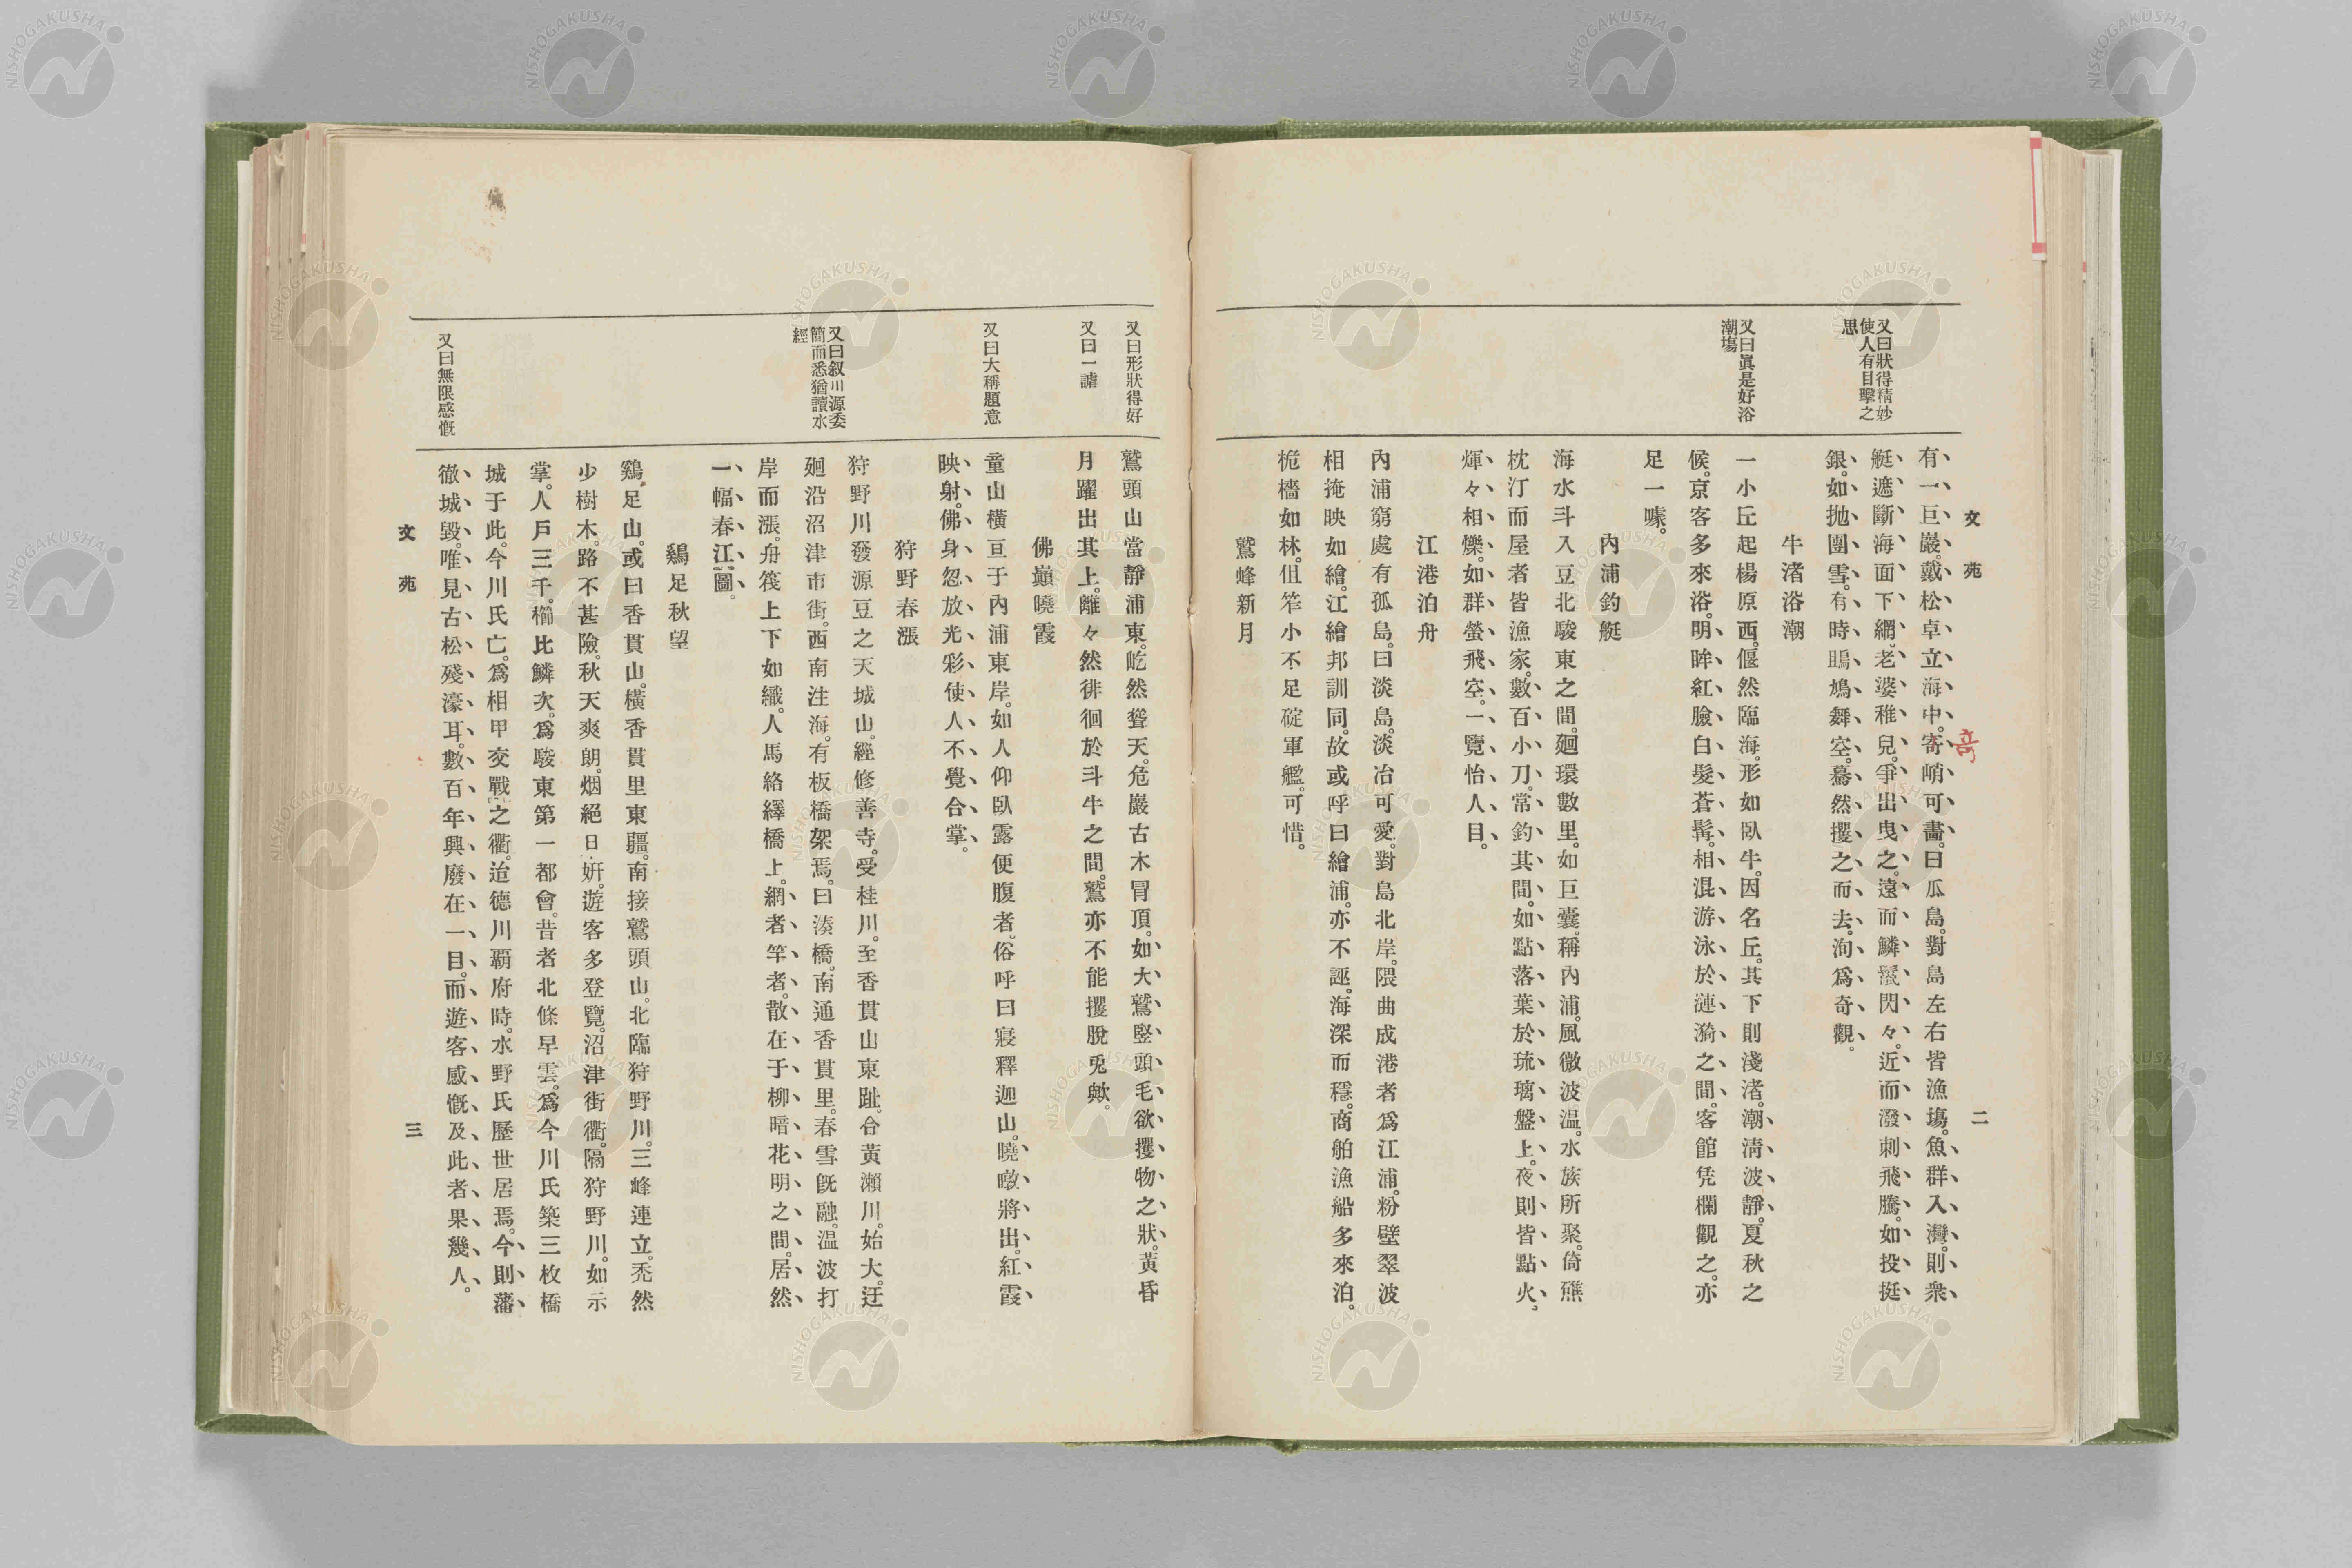 文苑
二
又曰狀得精妙
使人有目擊之
思
又曰眞是好浴
潮塲
有一巨巖。戴松卓立海中。寄峭可畵。曰瓜島。對島左右皆漁塲。魚群入灣。則衆
奇
艇遮斷海面下網。老婆稚兒。爭出曳之。遠而鱗鬣閃々。近而潑剌飛騰。如投挺
銀。如抛團雪。有時鴟鳩舞空。驀然攫之而去。洵爲奇觀。
牛渚浴潮
一小丘起楊原西。偃然臨海。形如臥牛。因名丘。其下則淺渚。潮淸波靜。夏秋之
候。京客多來浴。明眸紅臉。白髮蒼髯。相混游泳於漣漪之間。客館凭欄觀之。亦
足一噱。
內浦釣艇
海水斗入豆北駿東之間。廻環數里。如巨囊。稱內浦。風微波温。水族所聚。倚礁
枕汀而屋者皆漁家。數百小刀。常釣其間。如點落葉於琉璃盤上。夜則皆點火。
煇々相爍。如群螢飛空。一覽怡人目。
江港泊舟
內浦窮處有孤島。曰淡島。淡冶可愛。對島北岸。隈曲成港者爲江浦。粉壁翠波
相掩映如繪。江繪邦訓同。故或呼曰繪浦。亦不誣。海深而穩。商舶漁船多來泊。
桅檣如林。但笮小不足碇軍艦。可惜。
鷲峰新月
又曰形狀得好
又曰一謔
又曰大稱題意
又曰叙川源委
簡而悉猶讀水
經
又曰無限感慨
鷲頭山當靜浦東。屹然聳天。危巖古木冒頂。如大鷲竪頭毛欲攫物之狀。黃昏
月躍出其上。離々然徘徊於斗牛之間。鷲亦不能攫脫兎歟。
佛巓曉霞
童山橫亘于內浦東岸。如人仰臥露便腹者。俗呼曰寢釋迦山。曉暾將出。紅霞
映射。佛身忽放光彩。使人不覺合掌。
狩野春漲
狩野川發源豆之天城山。經修善寺。受桂川。至香貫山東趾。合黃瀨川。始大。迂
廻沿沼津市街。西南注海。有板橋架焉。曰湊橋。南通香貫里。春雪旣融。温波打
岸而漲。舟筏上下如織。人馬絡繹橋上。網者竿者。散在于柳暗花明之間。居然
一幅春江圖。
鷄足秋望
鷄足山。或曰香貫山。橫香貫里東疆。南接鷲頭山。北臨狩野川。三峰連立。禿然
少樹木。路不甚險。秋天爽朗。烟絕日妍。遊客多登覽。沼津街衢。隔狩野川。如示
掌。人戶三千。櫛比鱗次。爲駿東第一都會。昔者北條早雲。爲今川氏築三枚橋
城于此。今川氏亡。爲相甲交戰之衢。迨德川覇府時。水野氏歷世居焉。今則藩
徹城毀。唯見古松殘濠耳。數百年興廢在一目。而遊客感慨及此者。果幾人。
文苑
三